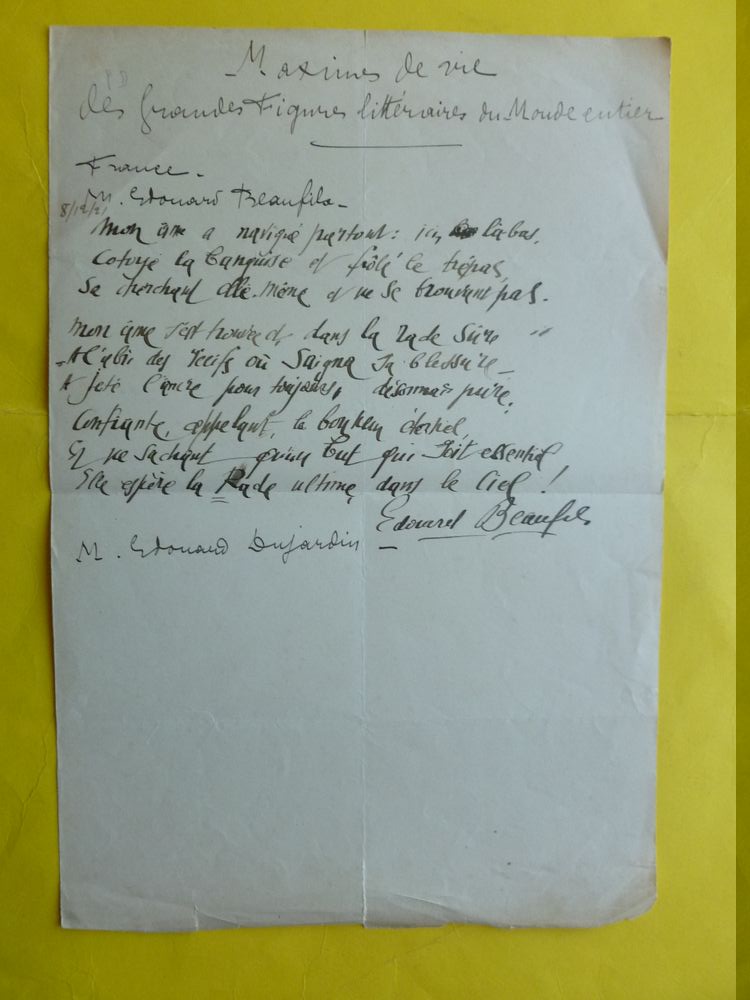 Maximes de vie
des Grandes Figures littéraires du Monde entier
France.
M. Edouard Beaufils
8/12/21
Mon âme a navigué partout : ici, là bas,
Cotoyé la banquise et frôlé le trépas,
Se cherchant elle-même et ne se trouvant pas.
Mon âme s'est trouvée et, dans la rade sûre
A l'abri des récifs où saigna sa blessure
A jeté l'ancre pour toujours, désormais pure,
Confiante, appelant, le bonheur éternel,
Et ne sachant qu'un but qui soit essentiel
Elle espère la Rade ultime, dans le Ciel !
Edouard Beaufils
M. Edouard Dujardin